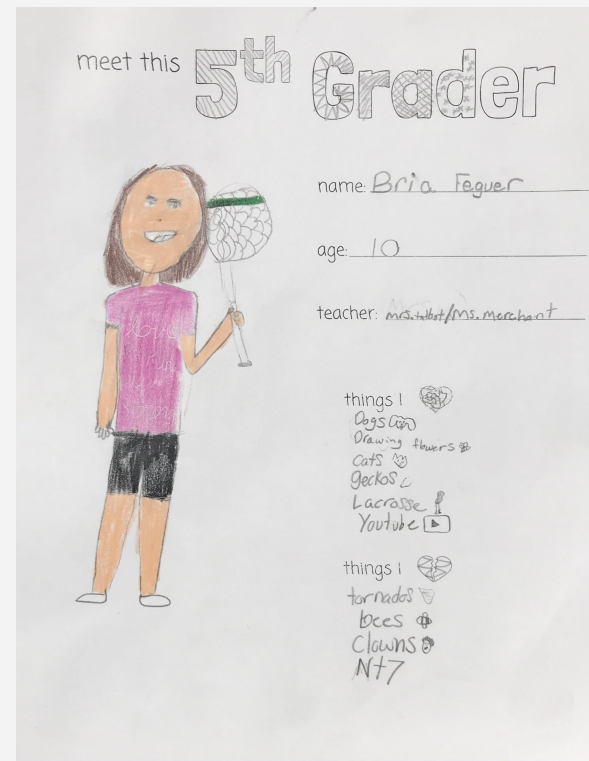 meet this 5th Grader
name: Bria Feguer
age: 10
teacher: mrs.talbot/Ms. Marchant
things I
Dogs
Drawing flowers
Cats
geckos
Lacrosse
Youtube
things I
tornados
bees
Clowns
N+7